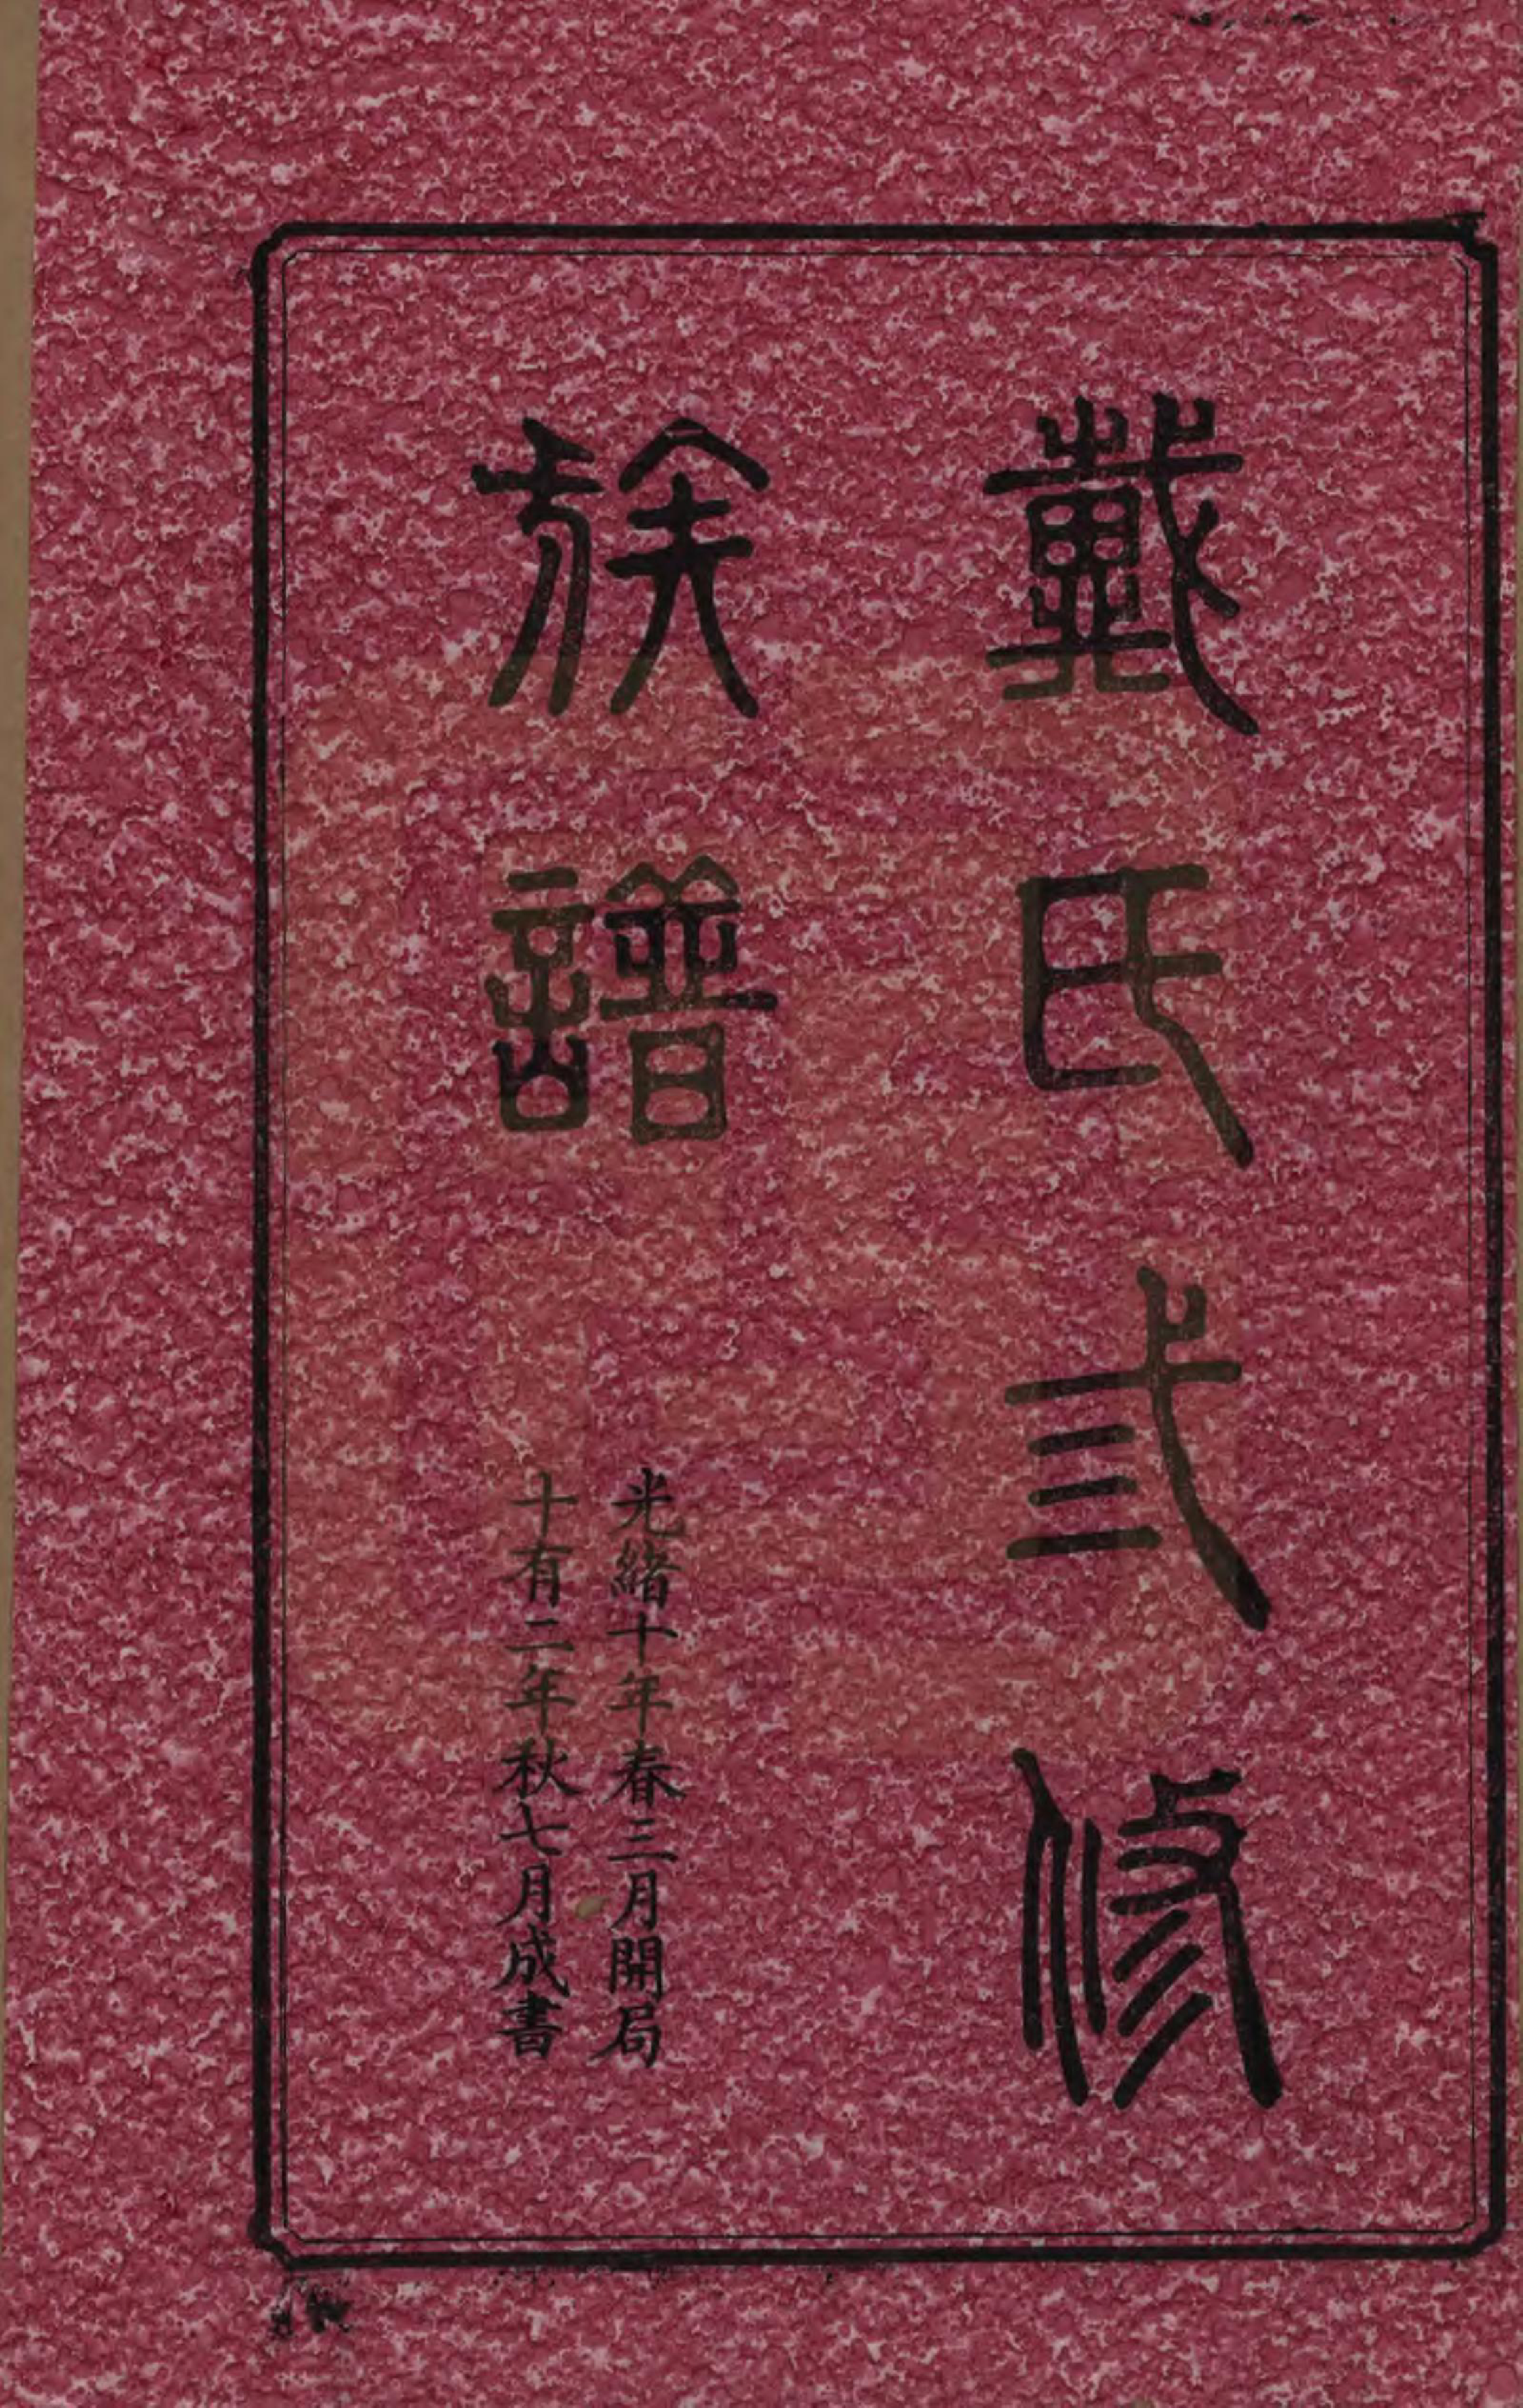 戴氏弎修
族譜
光緒十年春三月開局
十有二年秋七月成書